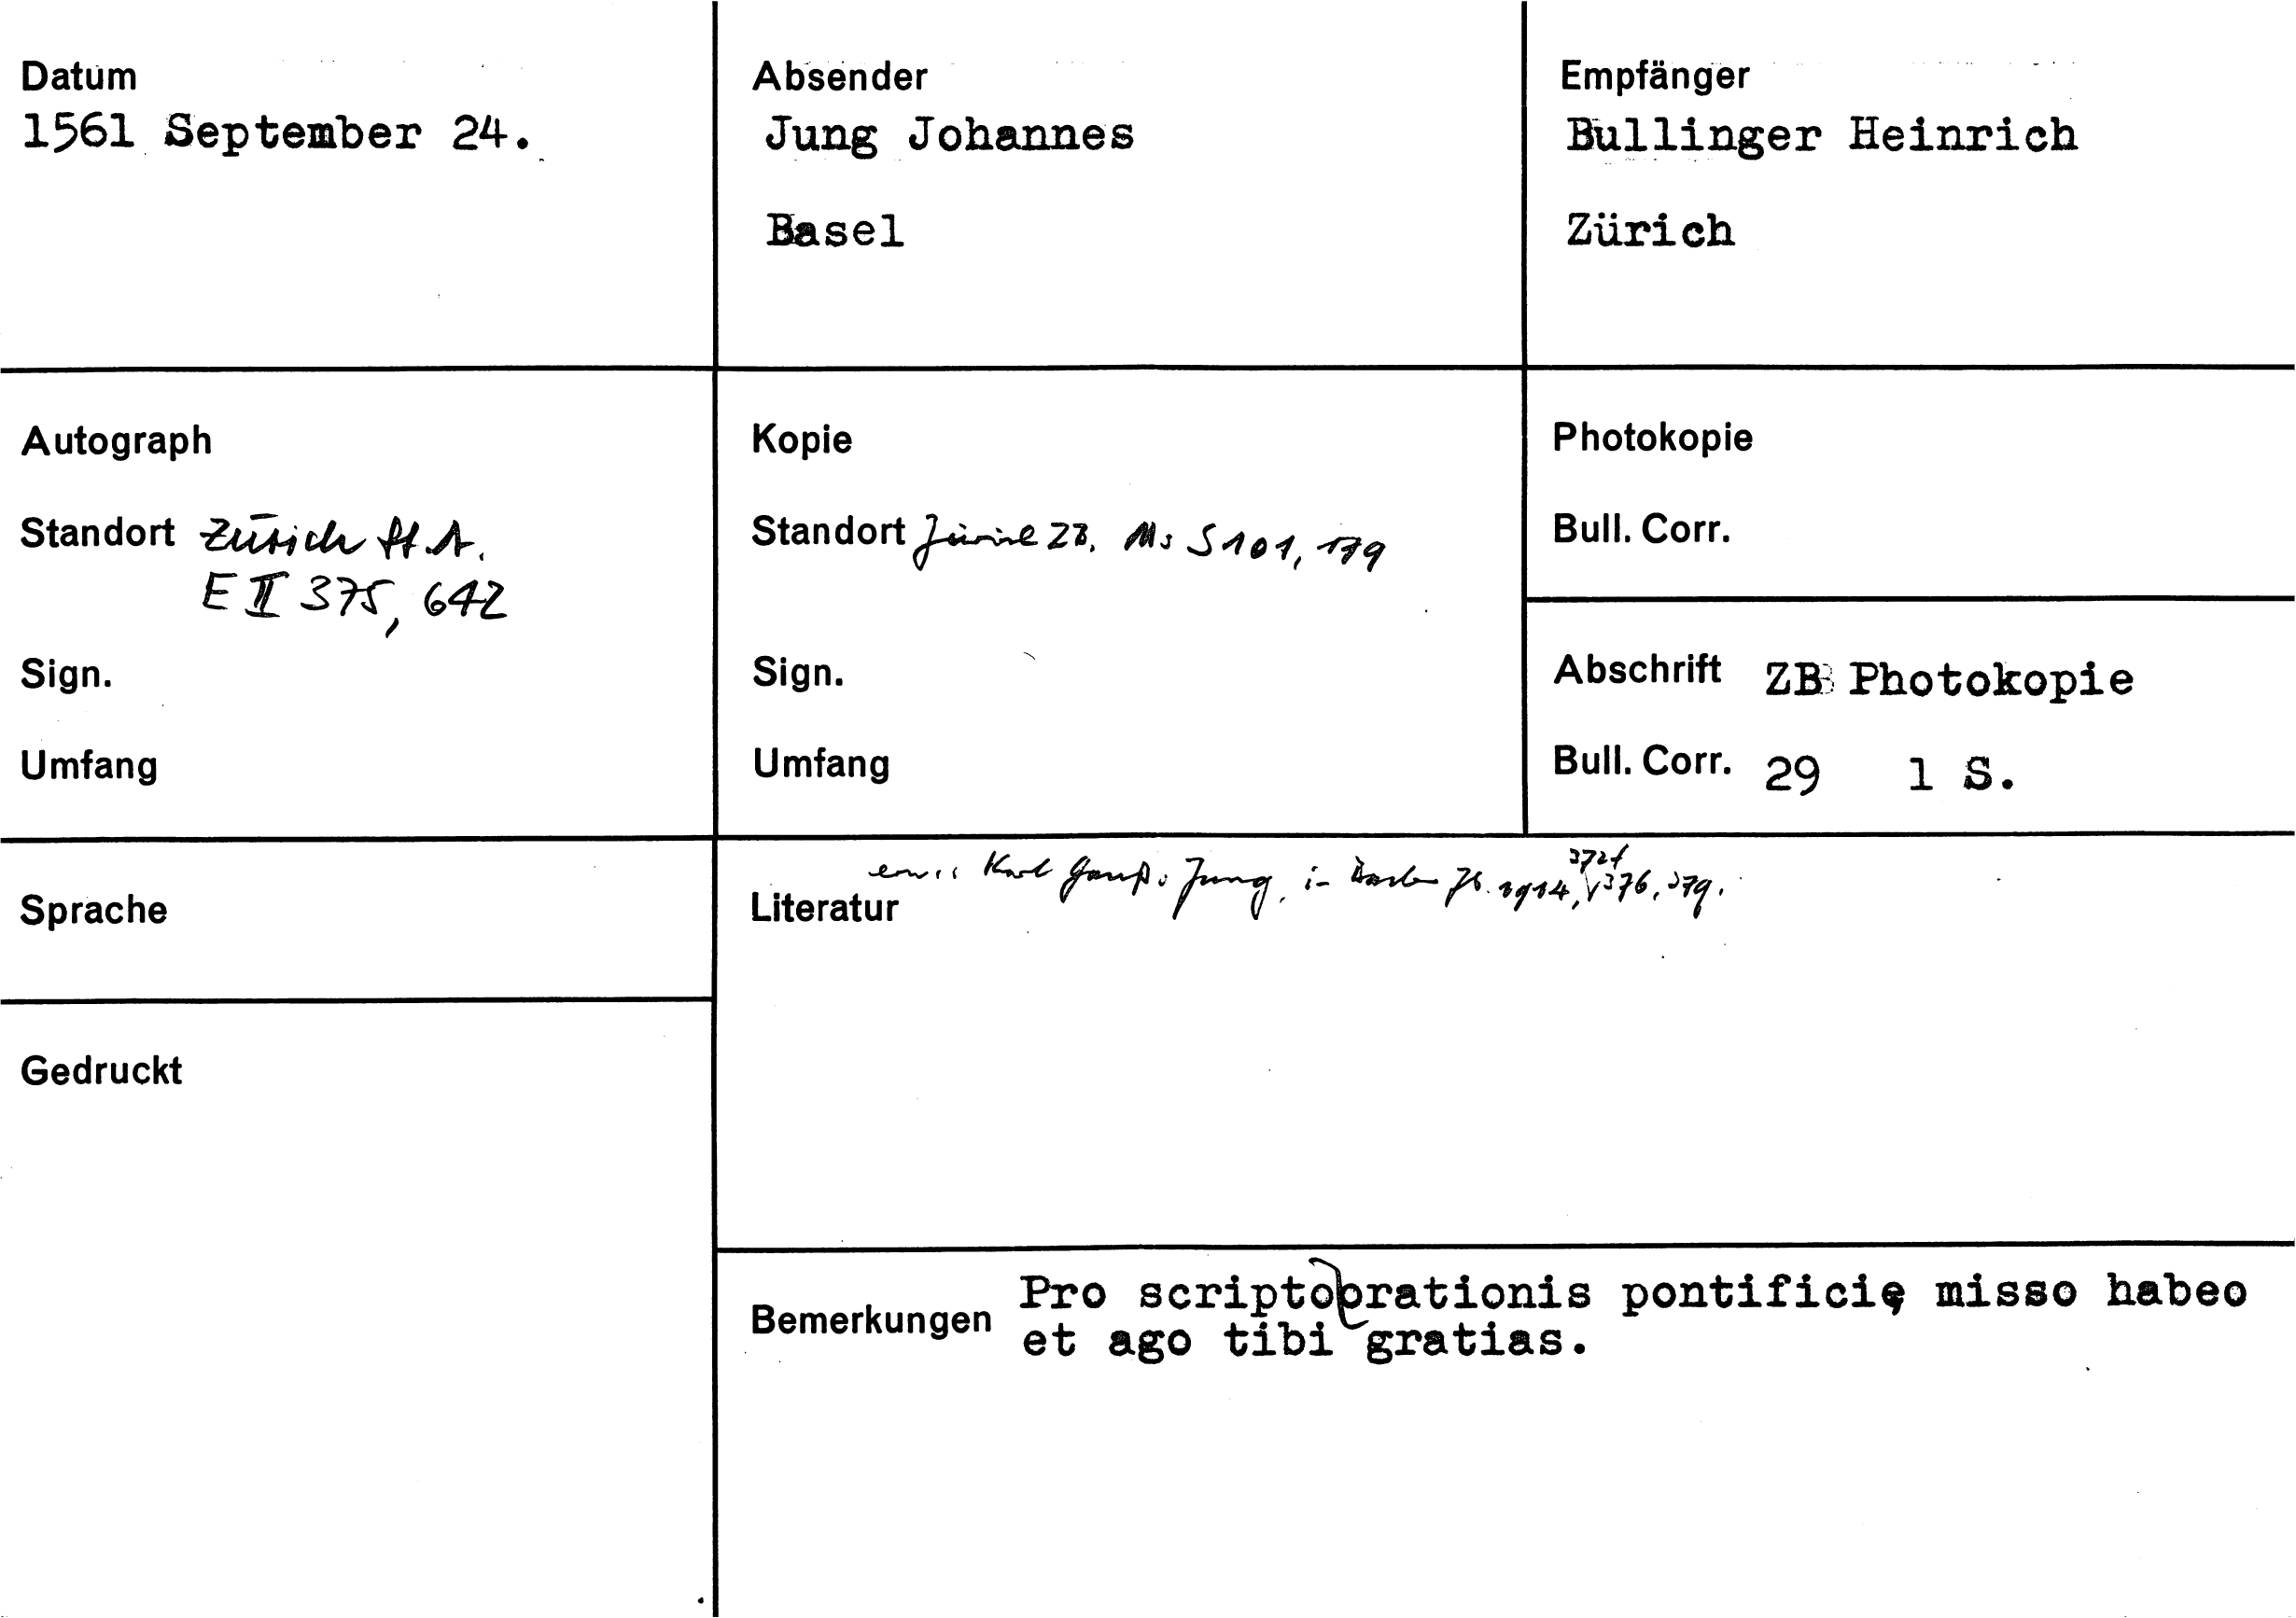 Datum
1561 September 24.
Absender
Jung Johannes
Basel
Empfänger
Bullinger Heinrich
Zürich
Autograph
Standort Zürich StA.
E II 375, 642
Sign.
Umfang
Kopie
Standort Zürich ZB. Ms S 101, 179
Sign.
Umfang
Photokopie
Bull. Corr.
Abschrift ZB Photokopie
Bull. Corr. 29 1 S.
Sprache
Gedruckt
Literatur
Karl Gauß: Jung, in Basler Jb. 1914, 372f 376, 379.
Bemerkungen
Pro scripto orationis pontificię misso habeo
et ago tibi gratias.